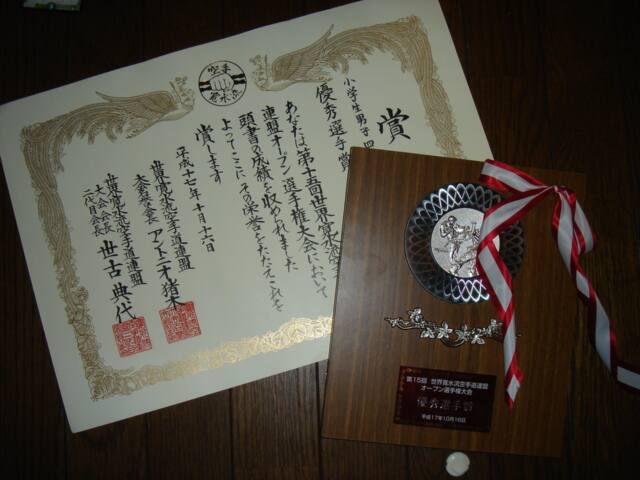 空手
寛水流
賞
小学生男子四
優秀選手賞
あなたは第十五回世界寛水流
連盟オープン選手権大会において
頭書の成績を収められました
よってここにその栄誉をたたえこれを
賞します
平成十七年十月十六日
世界寛水流空手道連盟
大会名誉会長 アントニオ猪木
世界寛水流空手道連盟
大会会長
二代目会長 世古典代
第15回 世界寛水流空手道連盟
オープン選手権大会
優秀選手賞
平成17年10月16日